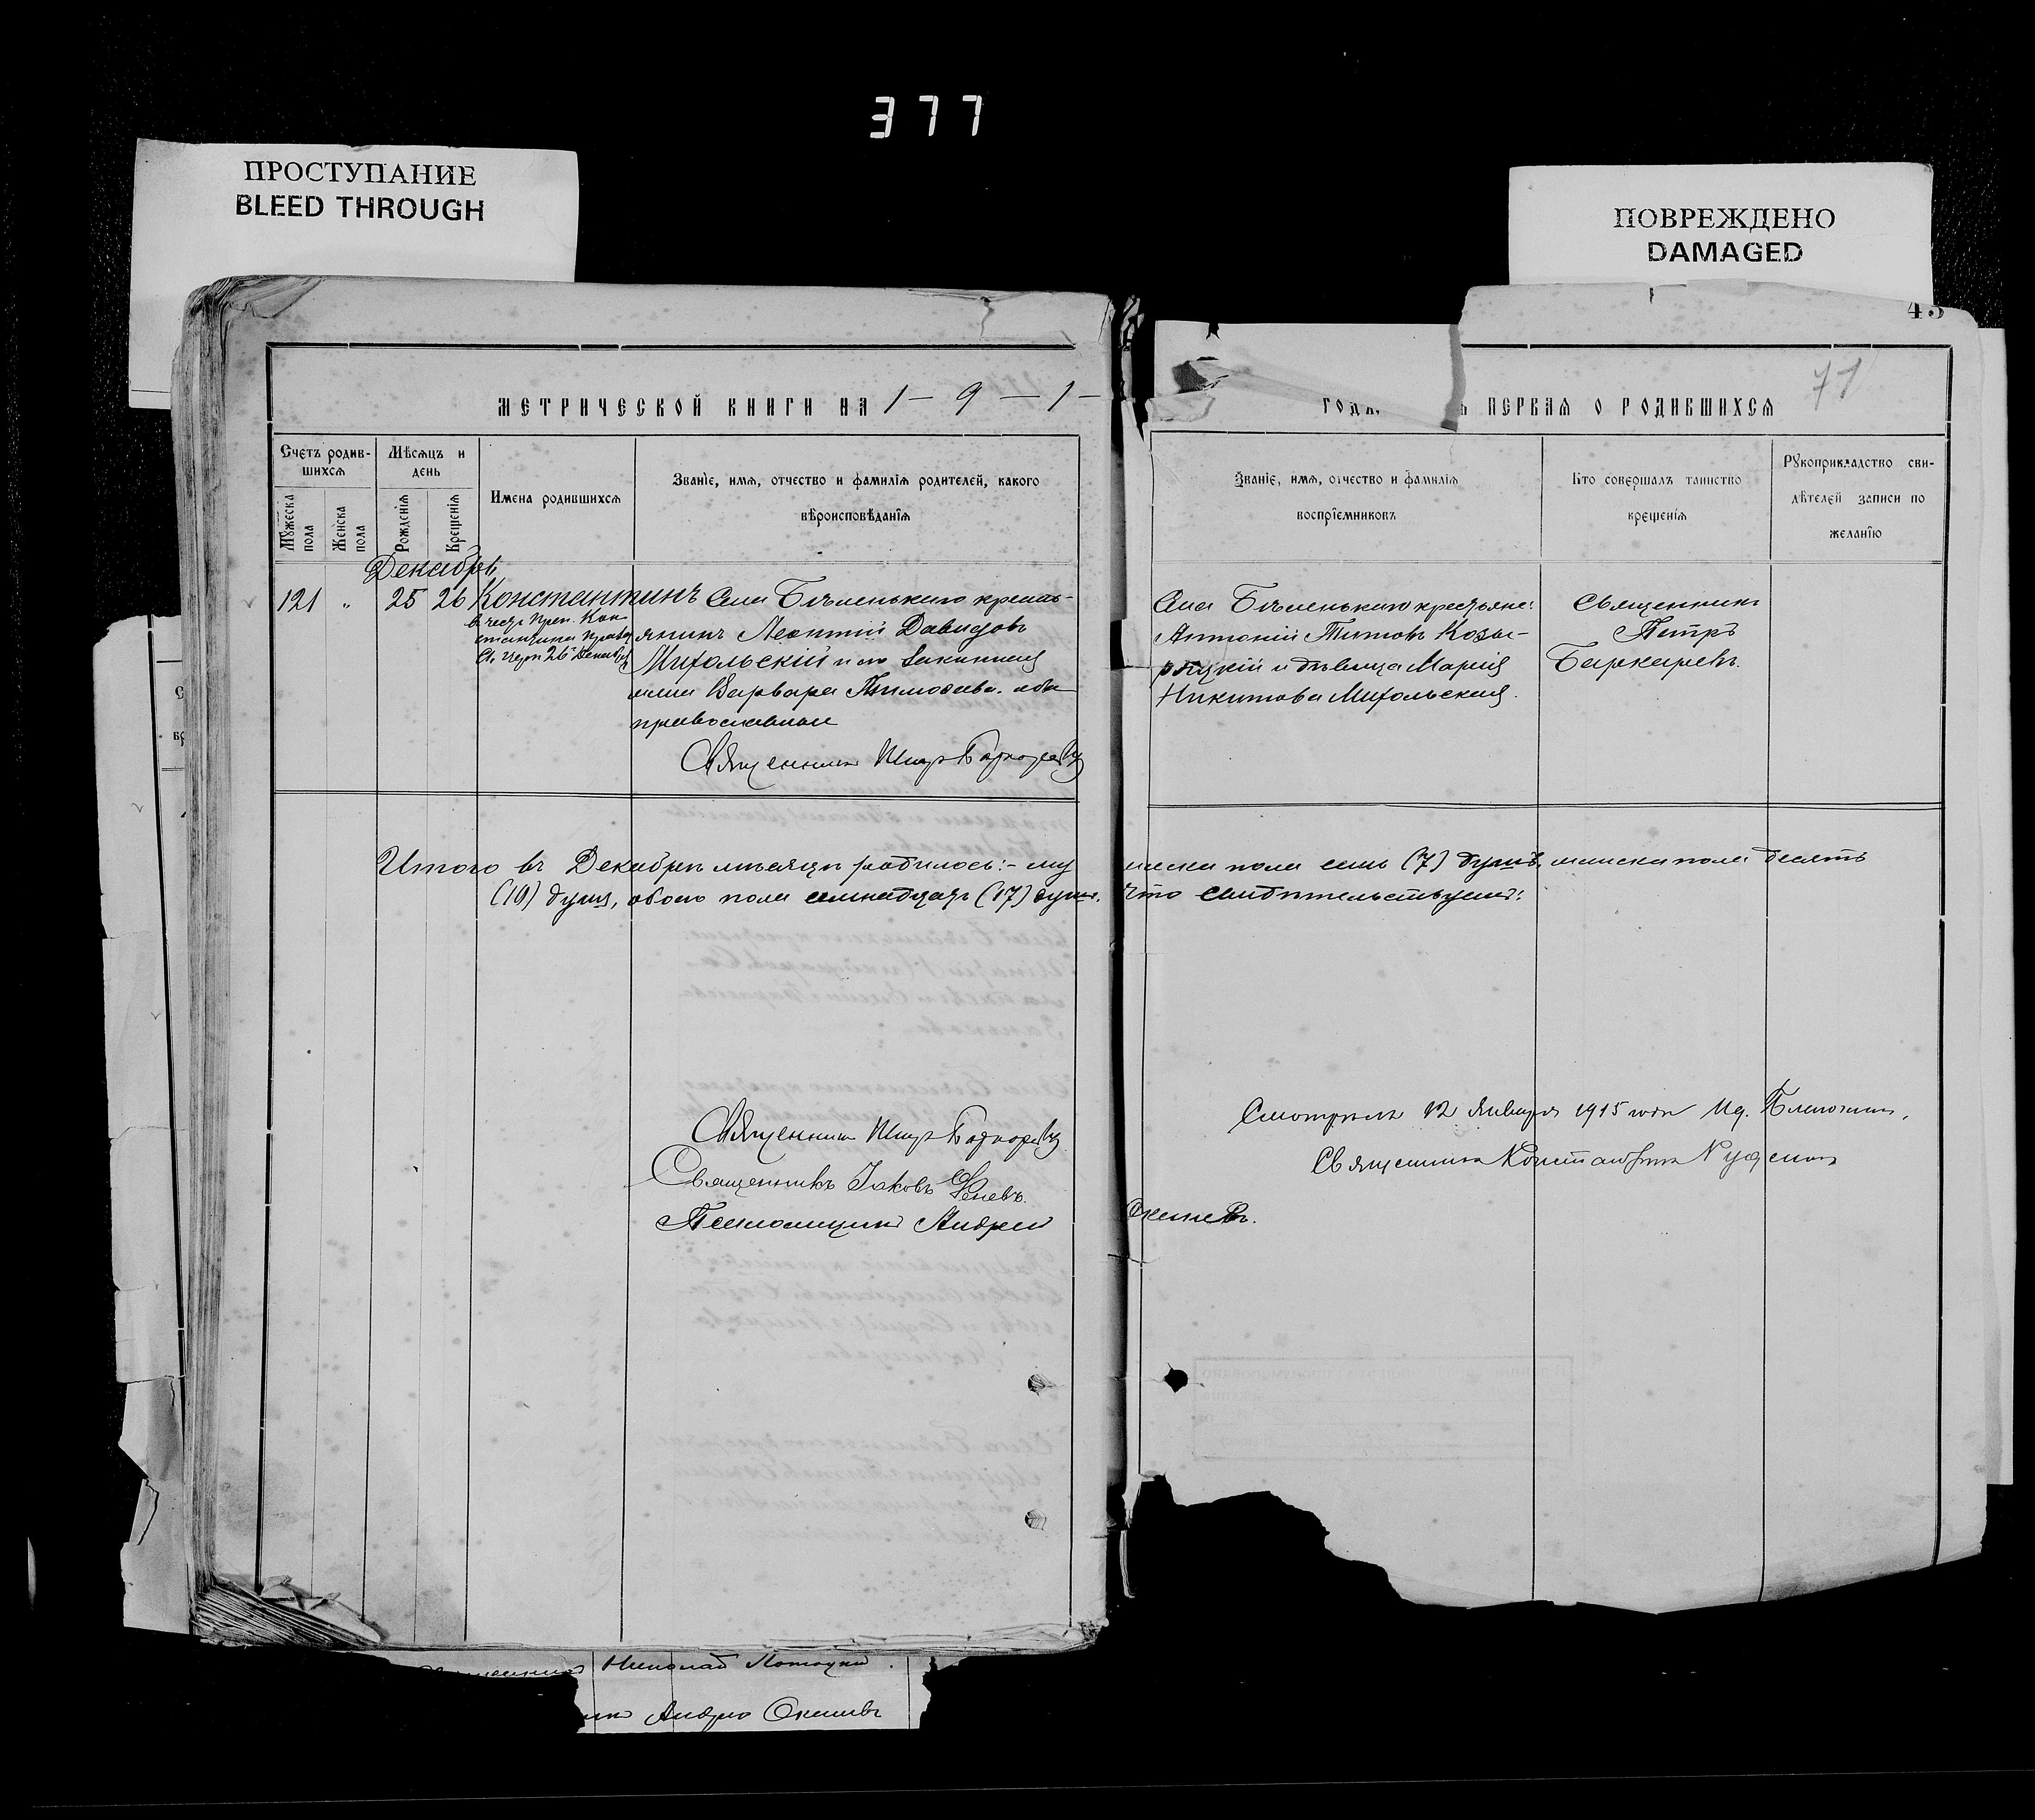 377
ПРОСТУПАНИЕ
BLEED THROUGH
ПОВРЕЖДЕНО
DAMAGED
45
71
МЕТРИЧЕСКОЙ КНИГИ НА 1 - 9 - 1 -
ГОДЪ ПЕРВАЯ О РОДИВШИХСЯ
Счетъ родив-
шихся
Мѣсяцъ и
день
Мужеска
пола
Женска
пола
Рожденія
Крещенія
Имена родившихся
Званіе, имя, отчество и фамилія родителей, какого
вѣроисповѣданія
Званіе, имя, отчество и фамилія
воспріемниковъ
Кто совершалъ таинство
крещенія
Рукоприкладство сви-
дѣтелей записи по
желанію
Декабрь
121 " 25 26 Константинъ
въ честь Преп. Кон-
Села Бѣленькаго кресть-
янинъ Леонтій Давидовъ
Михольскій и
Варвара обa
православные
Священникъ Петръ Баркаревъ
Села Бѣленькаго крестьяне:
Антоній Титовъ Козы-
рѣцкій и дѣвица Марія
Никитова Михольская.
Священникъ
Петръ
Баркаревъ.
Итого въ Декабрѣ мѣсяцѣ родилось:- му
жеска пола семь (7) душъ, женска пола десять
(10) душъ, обоего пола семнадцать (17) душъ.
Что свидѣтельствуемъ:
Священникъ Петръ Баркаревъ
Священникъ Іаковъ
Псаломщикъ Андрей
Окишевъ.
Смотрѣлъ 12 Января 1915 года
Священникъ Константинъ
Николай Потоцкій.
Андрей Окишевъ